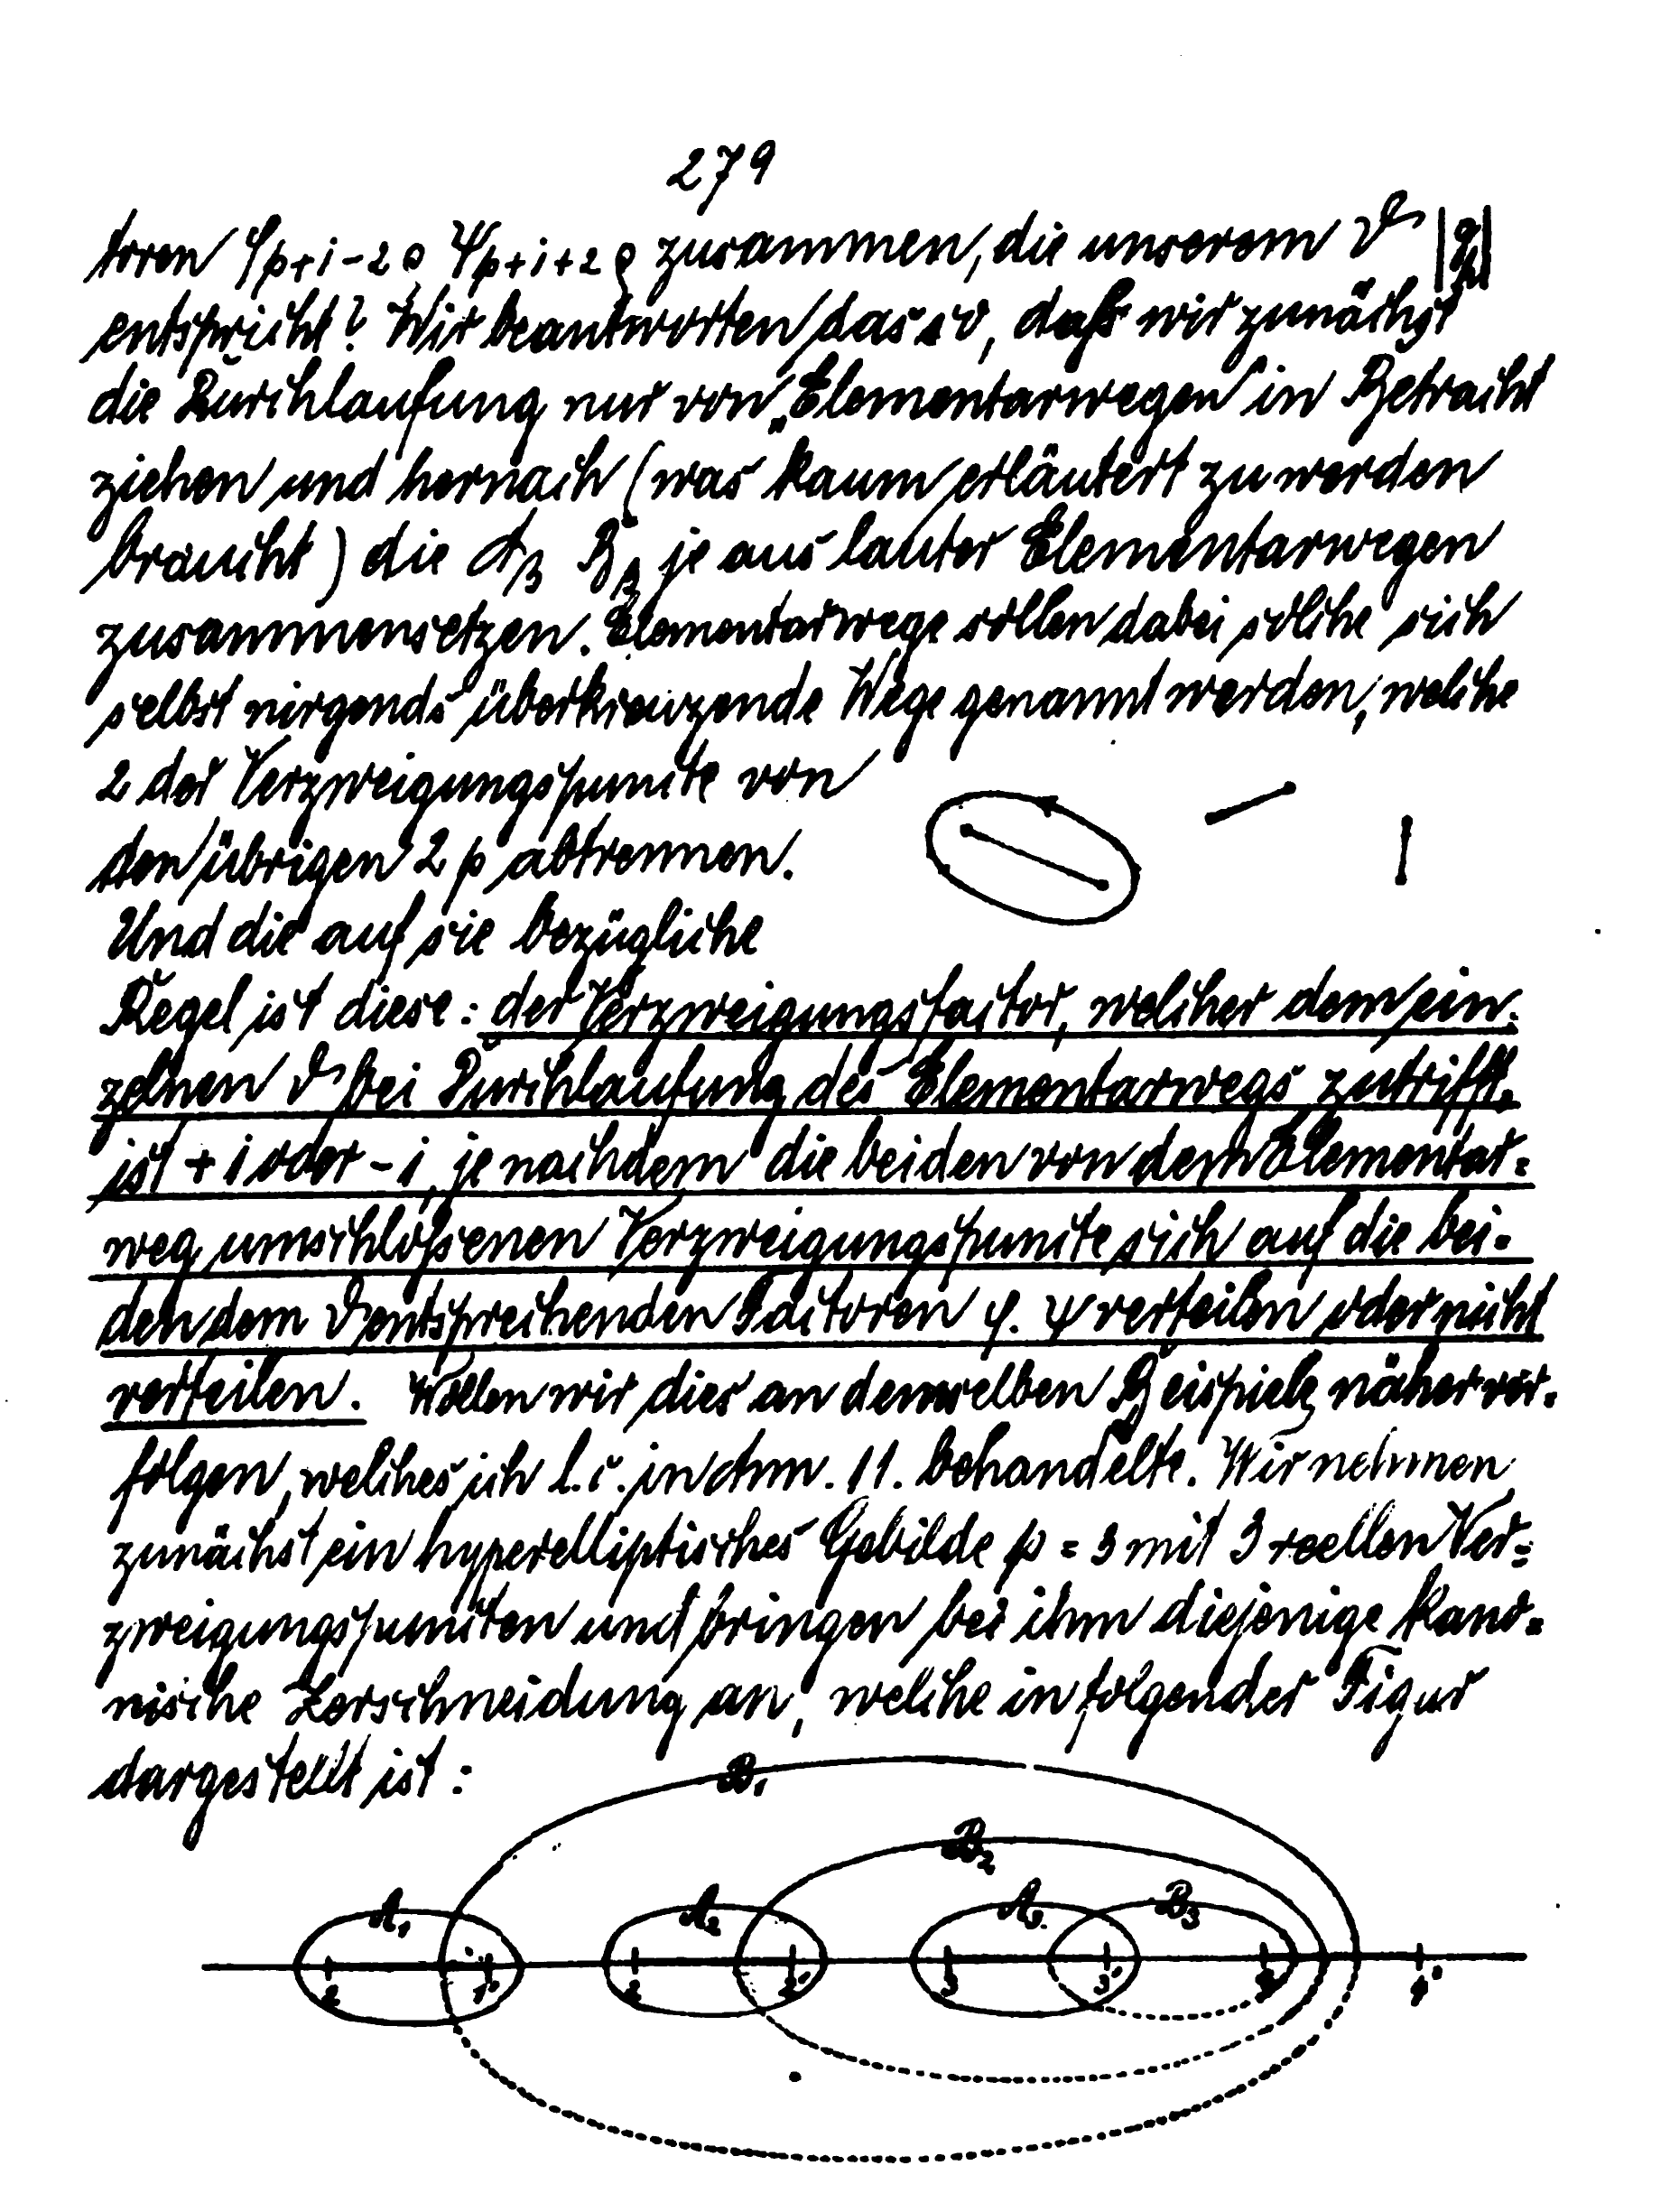 279
toren φp+i-2ρ ψp+i+2ρ zusammen, die unserem ϑ |g/h|
entspricht? Wir beantworten das so, daß wir zunächst
die Durchlaufung nur von „Elementarwegen" in Betracht
ziehen und hernach (was kaum erläutert zu werden
braucht) die Aβ Bβ je aus lauter Elementarwegen
zusammensetzen. Elementarwege sollen dabei solche sich
selbst nirgends überkreuzende Wege genannt werden, welche
2 der Verzweigungspuncte von
den übrigen 2p abtrennen.
Und die auf sie bezügliche
Regel ist diese: der Verzweigungsfactor, welcher dem ein-
zelnen ϑ bei Durchlaufung des Elementarwegs zutrifft,
ist + i oder - i, je nachdem die beiden von dem Elementar-
weg umschloßenen Verzweigungspuncte sich auf die bei-
den dem ϑ entsprechenden Factoren φ. ψ verteilen oder nicht
verteilen. Wollen wir dies an demselben Beispiele näher ver-
folgen, welches ich l. c. in Anm. 11. behandelte. Wir nehmen
zunächst ein hyperelliptisches Gebilde p = 3 mit 3 reellen Ver-
zweigungspuncten und bringen bei ihm diejenige kano-
nische Zerschneidung an, welche in folgender Figur
dargestellt ist:
B1
B2
A1 A2 A3 B3
1' 2 2' 3 3' 4'